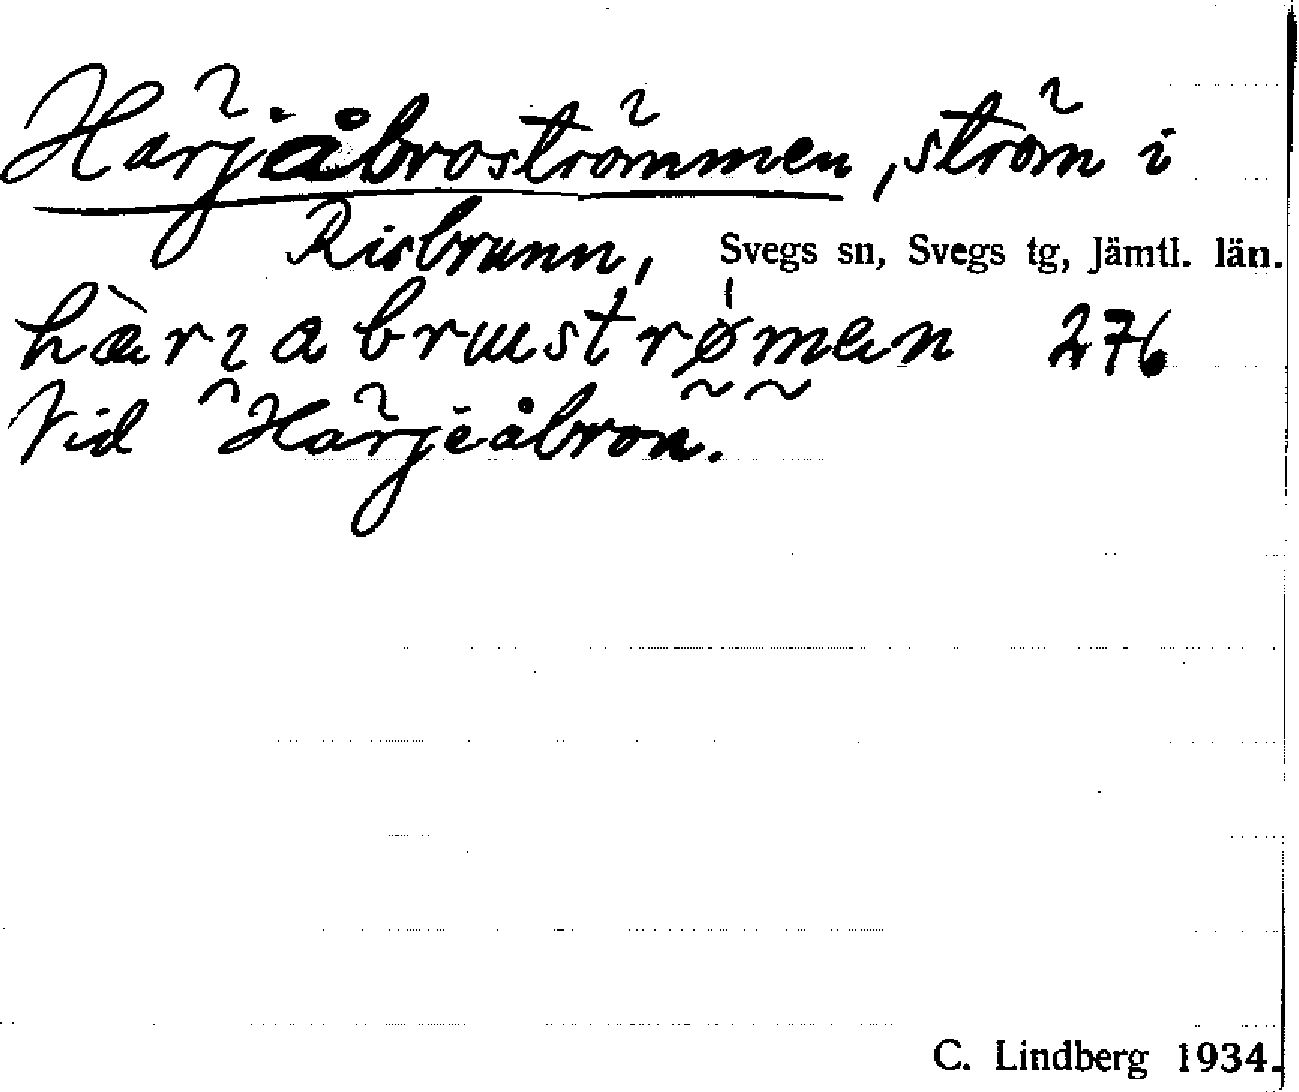 Härjåbroströmmen, ström i
Risbrunn, Svegs sn, Svegs tg, Jämtl. län.
hæ̀rɿabrɯstrømen 276
Vid Härjeåbron.
C. Lindberg 1934.